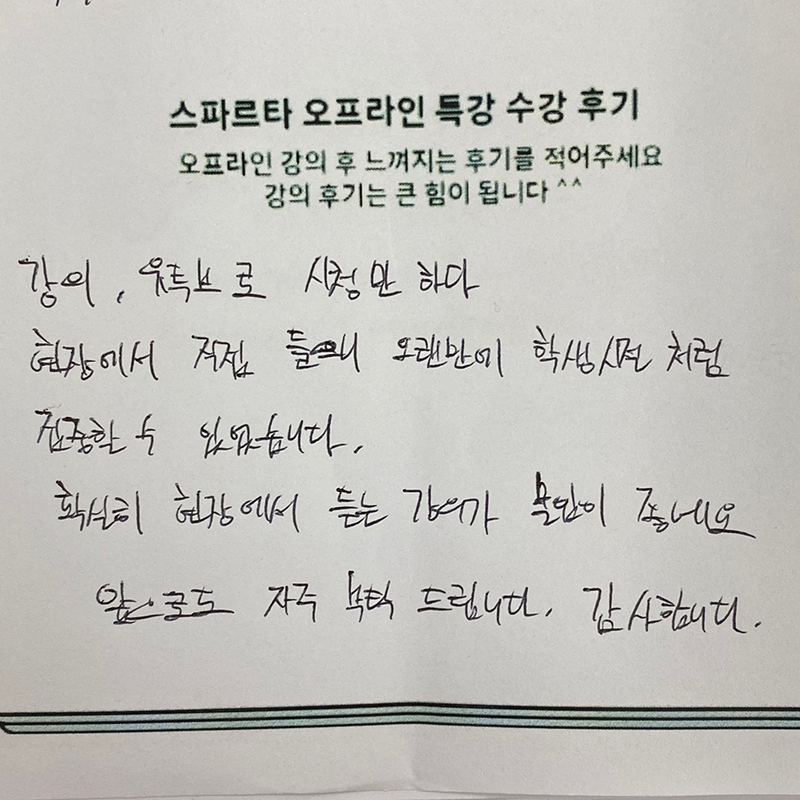 스파르타 오프라인 특강 수강 후기
오프라인 강의 후 느껴지는 후기를 적어주세요
강의 후기는 큰 힘이 됩니다 ^^
강의, 유튜브로 시청만 하다
현장에서 직접 들으니 오랜만에 학생시절처럼
집중할 수 있었습니다.
확실히 현장에서 듣는 강의가 몰입이 좋네요
앞으로도 자주 부탁 드립니다. 감사합니다.